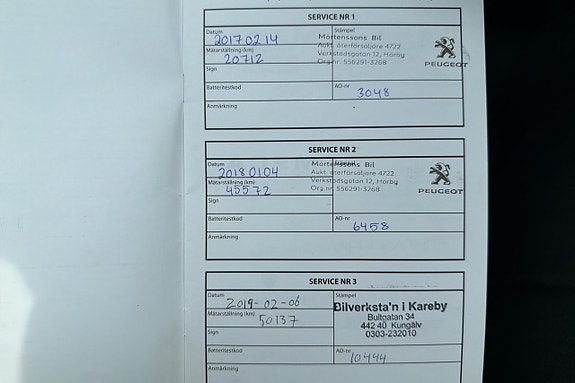 SERVICE NR 1
Datum
2017 02 14
Stämpel
Mårtenssons Bil
Aukt. återförsäljare 4722
Verkstadsgatan 12, Hörby
Org.nr. 556291-3268
PEUGEOT
Mätarställning (km)
20712
Sign
Batteritestkod
AO-nr
3048
Anmärkning
SERVICE NR 2
Datum
2018 01 04
Stämpel
Mårtenssons Bil
Aukt. återförsäljare 4722
Verkstadsgatan 12, Hörby
Org.nr. 556291-3268
PEUGEOT
Mätarställning (km)
45572
Sign
Batteritestkod
AO-nr
6458
Anmärkning
SERVICE NR 3
Datum
2019-02-06
Stämpel
Bilverksta'n i Kareby
Bultgatan 34
442 40 Kungälv
0303-232010
Mätarställning (km)
50137
Sign
Batteritestkod
AO-nr
10444
Anmärkning